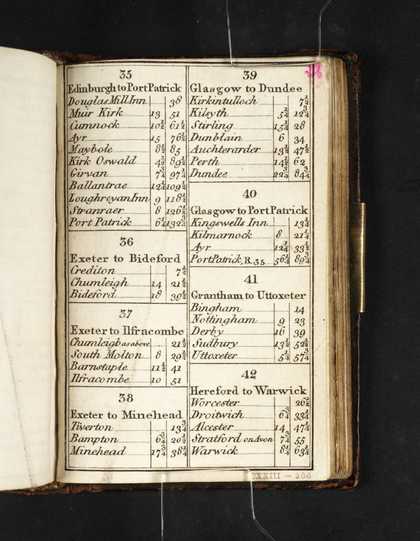 35
Edinburgh to Port Patrick
Douglas Mill Inn 38
Muir Kirk 13 51
Cumnock 10½ 61½
Ayr 15 76½
Maybole 8½ 85
Kirk Oswald 4½ 89½
Girvan 7¾ 97¼
Ballantrae 12¼ 109½
Loughroyan Inn 9 118½
Stranraer 8 126½
Port Patrick 6¼ 132¾
36
Exeter to Bideford
Crediton 7½
Chumleigh 14 21½
Bideford 18 39½
37
Exeter to Ilfracombe
Chumleigh as above 21½
South Molton 8 29½
Barnstaple 11½ 41
Ilfracombe 10 51
38
Exeter to Minehead
Tiverton
Bampton
Minehead
39
Glasgow to Dundee
Kirkintulloch
Kilsyth
Stirling 28
Dunblain 6 34
Auchterarder 13½ 47½
Perth 14½ 62
Dundee
40
Glasgow to Port Patrick
Kingswells Inn
Kilmarnock 8
Ayr
Port Patrick, R. 35
41
Grantham to Uttoxeter
Bingham 14
Nottingham 9 23
Derby 16 39
Sudbury
Uttoxeter
42
Hereford to Warwick
Worcester
Droitwich
Alcester
Stratford on Avon 55
Warwick